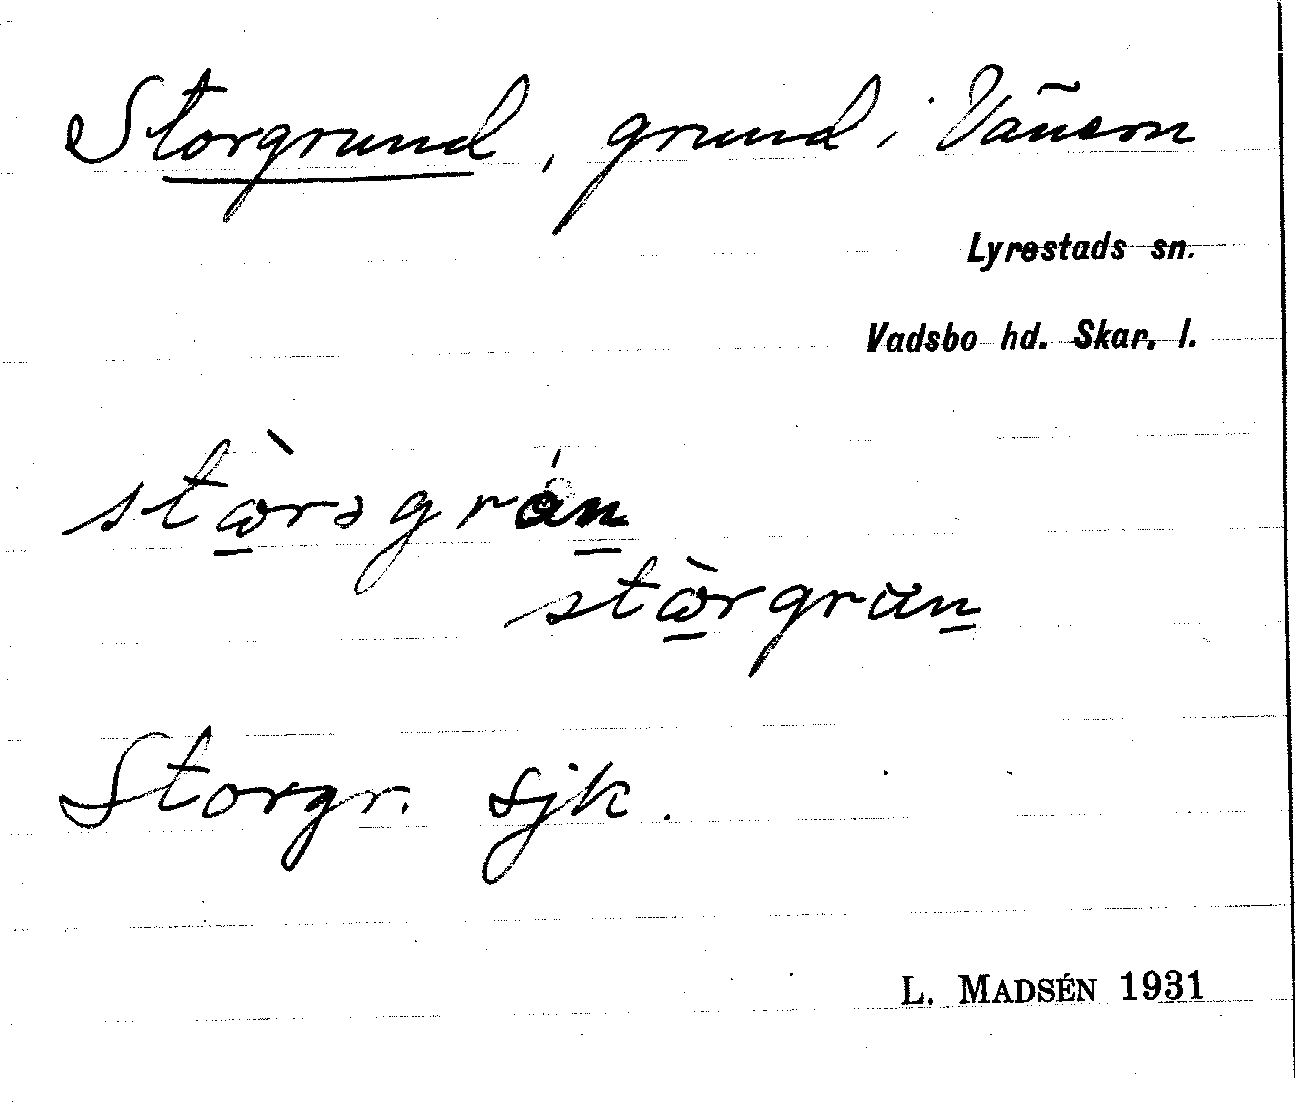 Storgrund, grund i Vänern
Lyrestads sn.
Vadsbo hd. Skar. l.
Storgr. sjk.
L. MADSÉN 1931